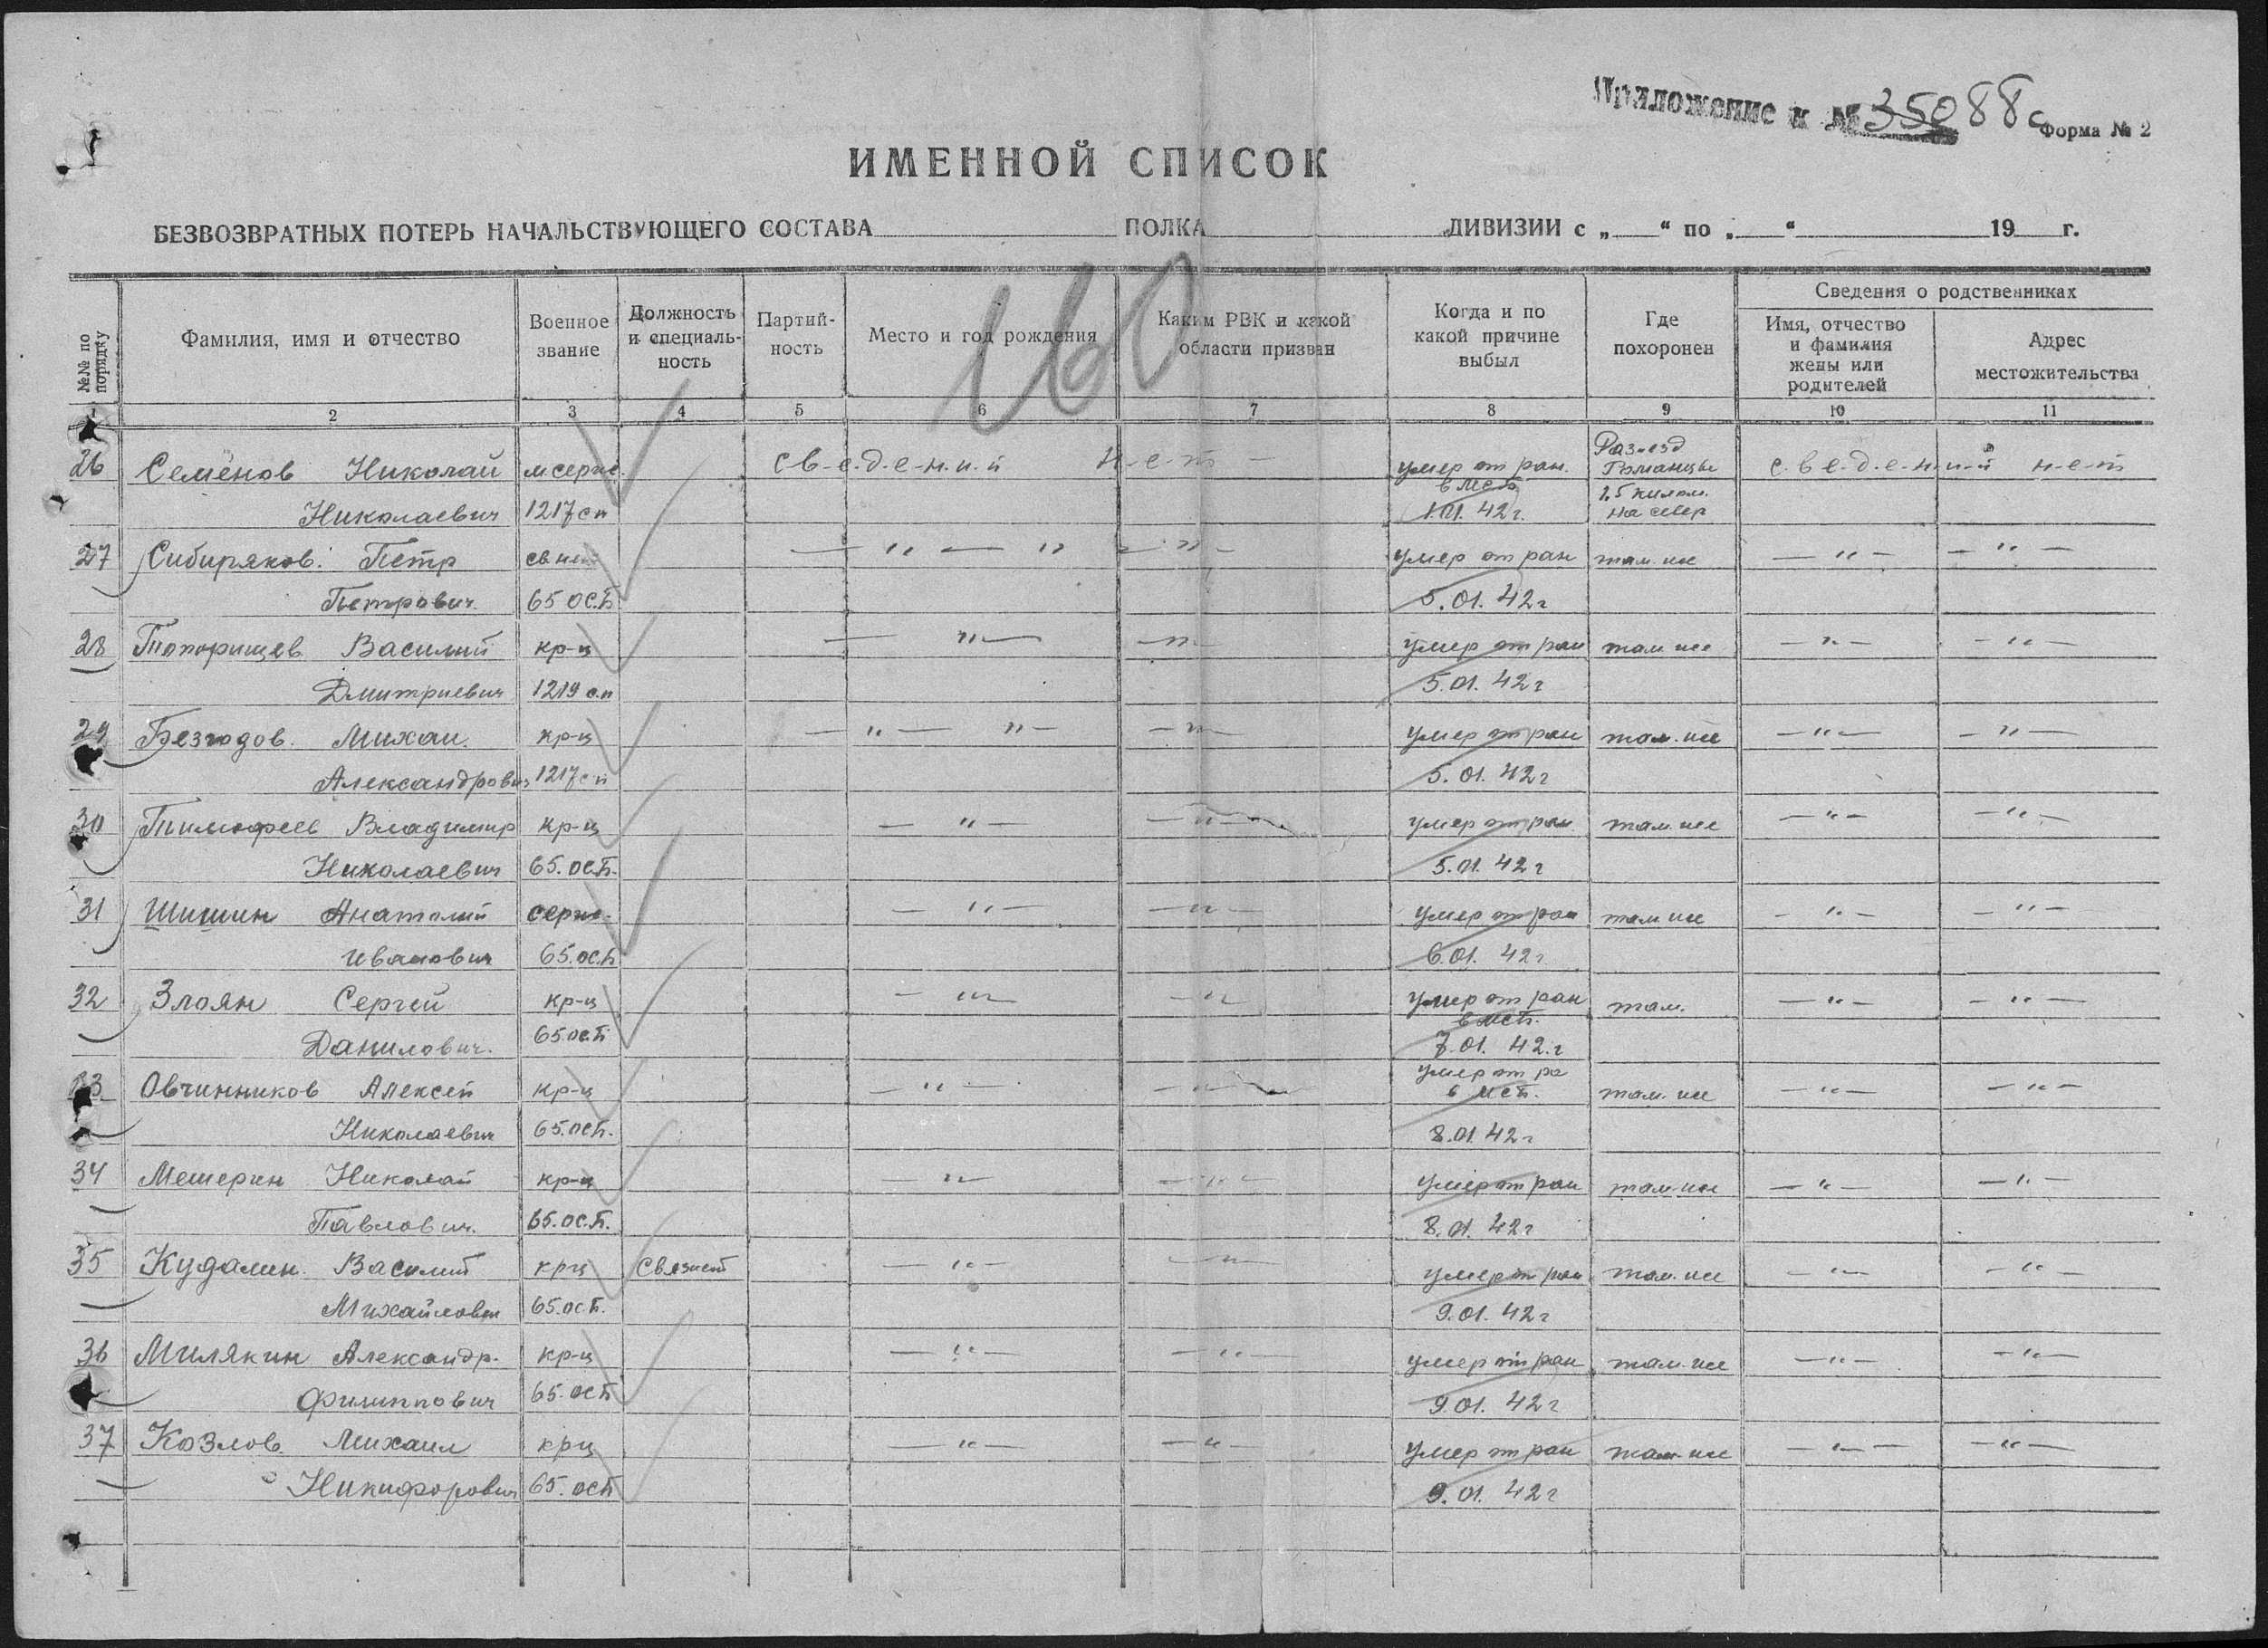 Приложение к № 35088с
Форма № 2
ИМЕННОЙ СПИСОК
БЕЗВОЗВРАТНЫХ ПОТЕРЬ НАЧАЛЬСТВУЮЩЕГО СОСТАВА ПОЛКА ДИВИЗИИ с „ “ по „ “ 19 г.
160
№№ по порядку Фамилия, имя и отчество Военное звание Должность и специаль-ность Партий-ность Место и год рождения Каким РВК и какой области призван Когда и по какой причине выбыл Где похоронен Сведения о родственниках
Имя, отчество и фамилия жены или родителей Адрес местожительства
2 3 4 5 6 7 8 9 10 11
26 Семёнов Николай мсерж. с-в-е-д-е-н-и-й н-е-т умер от ран. Разъезд с-в-е-д-е-н-и-й н-е-т
Николаевич 1217 сп 1.01.42г. 1,5 килом. на север
27 Сибиряков Петр — " — " — " — умер от ран там же — " — — " —
Петрович 65 ОСБ 5.01.42г
28 Топорищев Василий кр-ц — " — — " — умер от ран там же — " — — " —
Дмитриевич 1219 сп 5.01.42г
29 Безгодов Михаи. кр-ц — " — " — — " — умер от ран там же — " — — " —
Александрович 1217 сп 5.01.42г
30 Тимофеев Владимир кр-ц — " — — " — умер от ран там же — " — — " —
Николаевич 65.ОСБ. 5.01.42г
31 Шишин Анатолий серж. — " — — " — умер от ран там же — " — — " —
Иванович 65.ОСБ 6.01.42г
32 Злоян Сергей кр-ц — " — — " — умер от ран там. — " — — " —
Данилович. 65 ОСБ 7.01.42.г
33 Овчинников Алексей кр-ц — " — — " — умер от ра там же — " — — " —
Николаевич 65.ОСБ. 8.01.42г
34 Мешерин Николай кр-ц " — " — умер от ран там же — " — — " —
Павлович. 65.ОСБ. 8.01.42г
35 Кудалин Василий крц связист — " — — " — умер от ран там же — " — — " —
Михайлович 65.ОСБ. 9.01.42г
36 Милякин Александр. кр-ц — " — — " — умер от ран там же — " — — " —
Филиппович 65.ОСБ 9.01.42г
37 Козлов Михаил крц — " — — " — умер от ран там же — " — — " —
Никифорович 65.ОСБ 9.01.42г